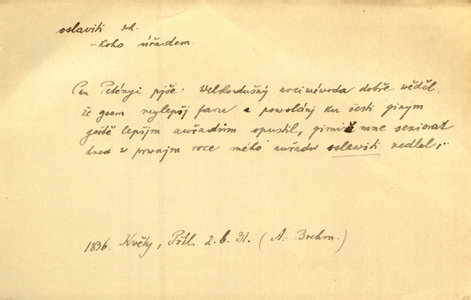 oslaviti dok.
- koho úřadem
Pan Petényi pjše: Welkodušný arciwéwoda dobře wěděl,
že gsem neylepšj faru a powolánj ku cti giným
geště lepšjm auřadům opustil, gimiž mne seniorat
hned w prwnjm roce mého auřadu oslawiti nedlel,
1836. Květy, Příl. 2. b. 31. (A. Brehm.)